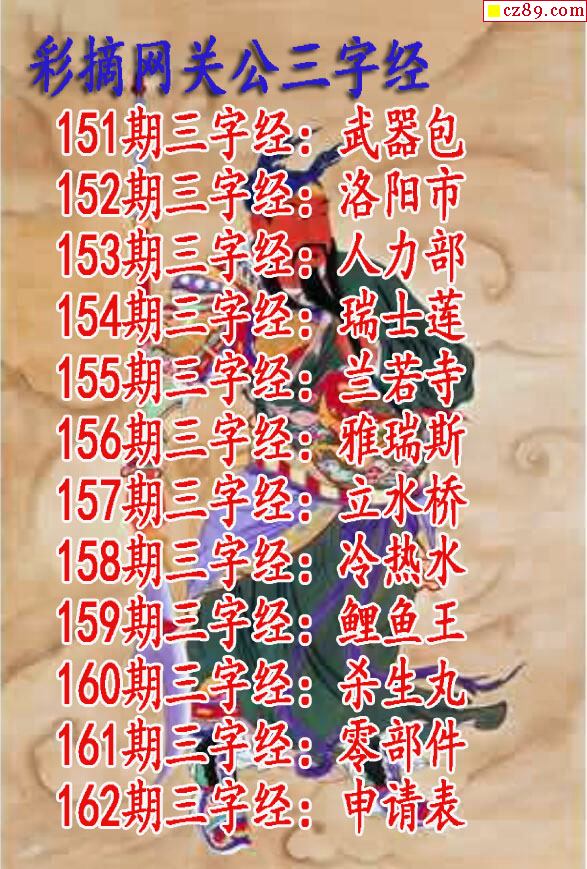 cz89.com
彩摘网关公三字经
151期三字经：武器包
152期三字经：洛阳市
153期三字经：人力部
154期三字经：瑞士莲
155期三字经：兰若寺
156期三字经：雅瑞斯
157期三字经：立水桥
158期三字经：冷热水
159期三字经：鲤鱼王
160期三字经：杀生丸
161期三字经：零部件
162期三字经：申请表